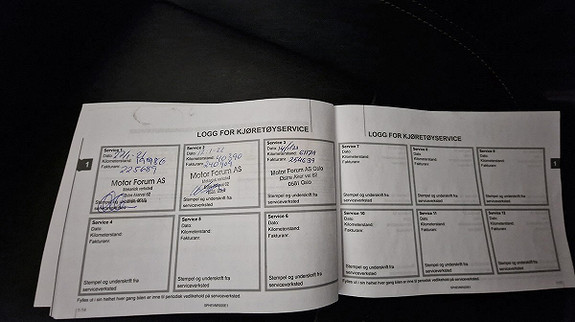 LOGG FOR KJØRETØYSERVICE
1
Service 1
Dato:
Kilometerstand: 19986
Fakturanr: 225689
Motor Forum AS
Service 2
Dato:
Kilometerstand: 40390
Fakturanr: 240909
Motor Forum AS
Service 3
Dato:
Kilometerstand: 61724
Fakturanr: 254639
Motor Forum AS Oslo
0581 Oslo
Service 4
Dato:
Kilometerstand:
Fakturanr:
Stempel og underskrift fra
serviceverksted:
Service 5
Dato:
Kilometerstand:
Fakturanr:
Stempel og underskrift fra
serviceverksted:
Service 6
Dato:
Kilometerstand:
Fakturanr:
Stempel og underskrift fra
serviceverksted:
Fylles ut i sin helhet hver gang bilen er inne til periodisk vedlikehold på serviceverksted.
LOGG FOR KJØRETØYSERVICE
1
Service 7
Dato:
Kilometerstand:
Fakturanr:
Stempel og underskrift fra
serviceverksted:
Service 8
Dato:
Kilometerstand:
Fakturanr:
Stempel og underskrift fra
serviceverksted:
Service 9
Dato:
Kilometerstand:
Fakturanr:
Stempel og underskrift fra
serviceverksted:
Service 10
Dato:
Kilometerstand:
Fakturanr:
Stempel og underskrift fra
serviceverksted:
Service 11
Dato:
Kilometerstand:
Fakturanr:
Stempel og underskrift fra
serviceverksted:
Service 12
Dato:
Kilometerstand:
Fakturanr:
Stempel og underskrift fra
serviceverksted:
Fylles ut i sin helhet hver gang bilen er inne til periodisk vedlikehold på serviceverksted.